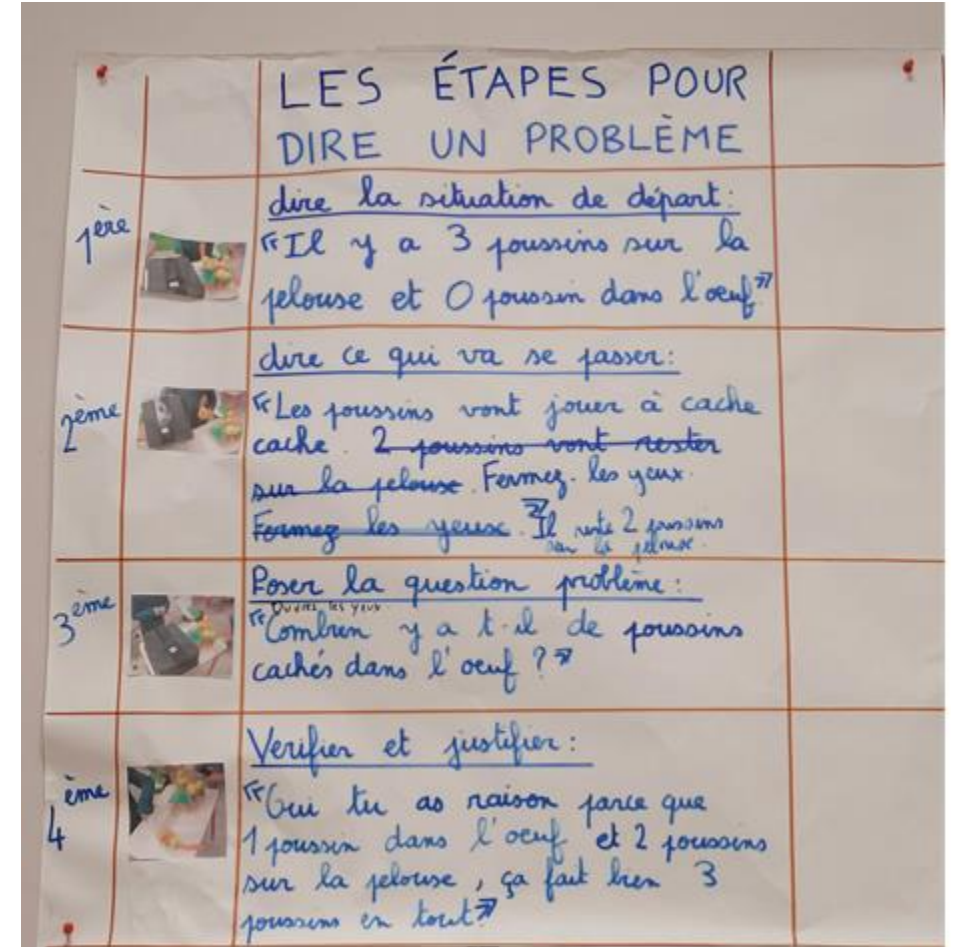 LES ÉTAPES POUR
DIRE UN PROBLÈME
1ère
dire la situation de départ:
"Il y a 3 poussins sur la
pelouse et 0 poussin dans l'oeuf"
2ème
dire ce qui va se passer:
"Les poussins vont jouer à cache
cache. 2 poussins vont rester
sur la pelouse. Fermez. les yeux.
Fermez les yeux." Il reste 2 poussins
sur la pelouse.
3ème
Poser la question problème:
Ouvrez les yeux
"Combien y a t-il de poussins
cachés dans l'oeuf ?"
4ème
Verifier et justifier:
"Oui tu as raison parce que
1 poussin dans l'oeuf et 2 poussins
sur la pelouse, ça fait bien 3
poussins en tout"